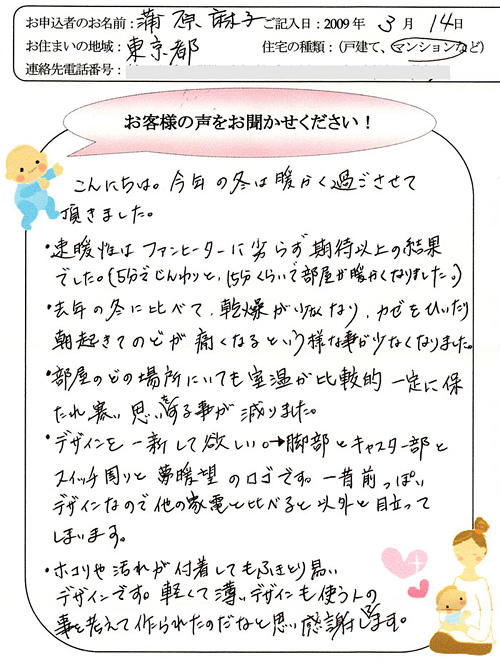 お申込者のお名前：蒲原 麻子 ご記入日：2009年 3月 14日
お住まいの地域：東京都 住宅の種類：(戸建て、マンションなど)
連絡先電話番号：
お客様の声をお聞かせください！
こんにちは。今年の冬は暖かく過ごさせて
頂きました。
・速暖性はファンヒーターに劣らず期待以上の結果
でした。(5分でじんわりと、15分くらいで部屋が暖かくなりました。)
・去年の冬に比べて、乾燥が少なくなり、カゼをひいたり
朝起きてのどが痛くなるという様な事が少なくなりました。
・部屋のどの場所にいても室温が比較的一定に保
たれ寒い思いをする事が減りました。
・デザインを一新して欲しい。→脚部とキャスター部と
スイッチ周りと夢暖望のロゴです。一昔前っぽい
デザインなので他の家電と比べると以外と目立って
しまいます。
・ホコリや汚れが付着してもふきとり易い
デザインです。軽くて薄いデザインも使う人の
事を考えて作られたのだなと思い感謝します。